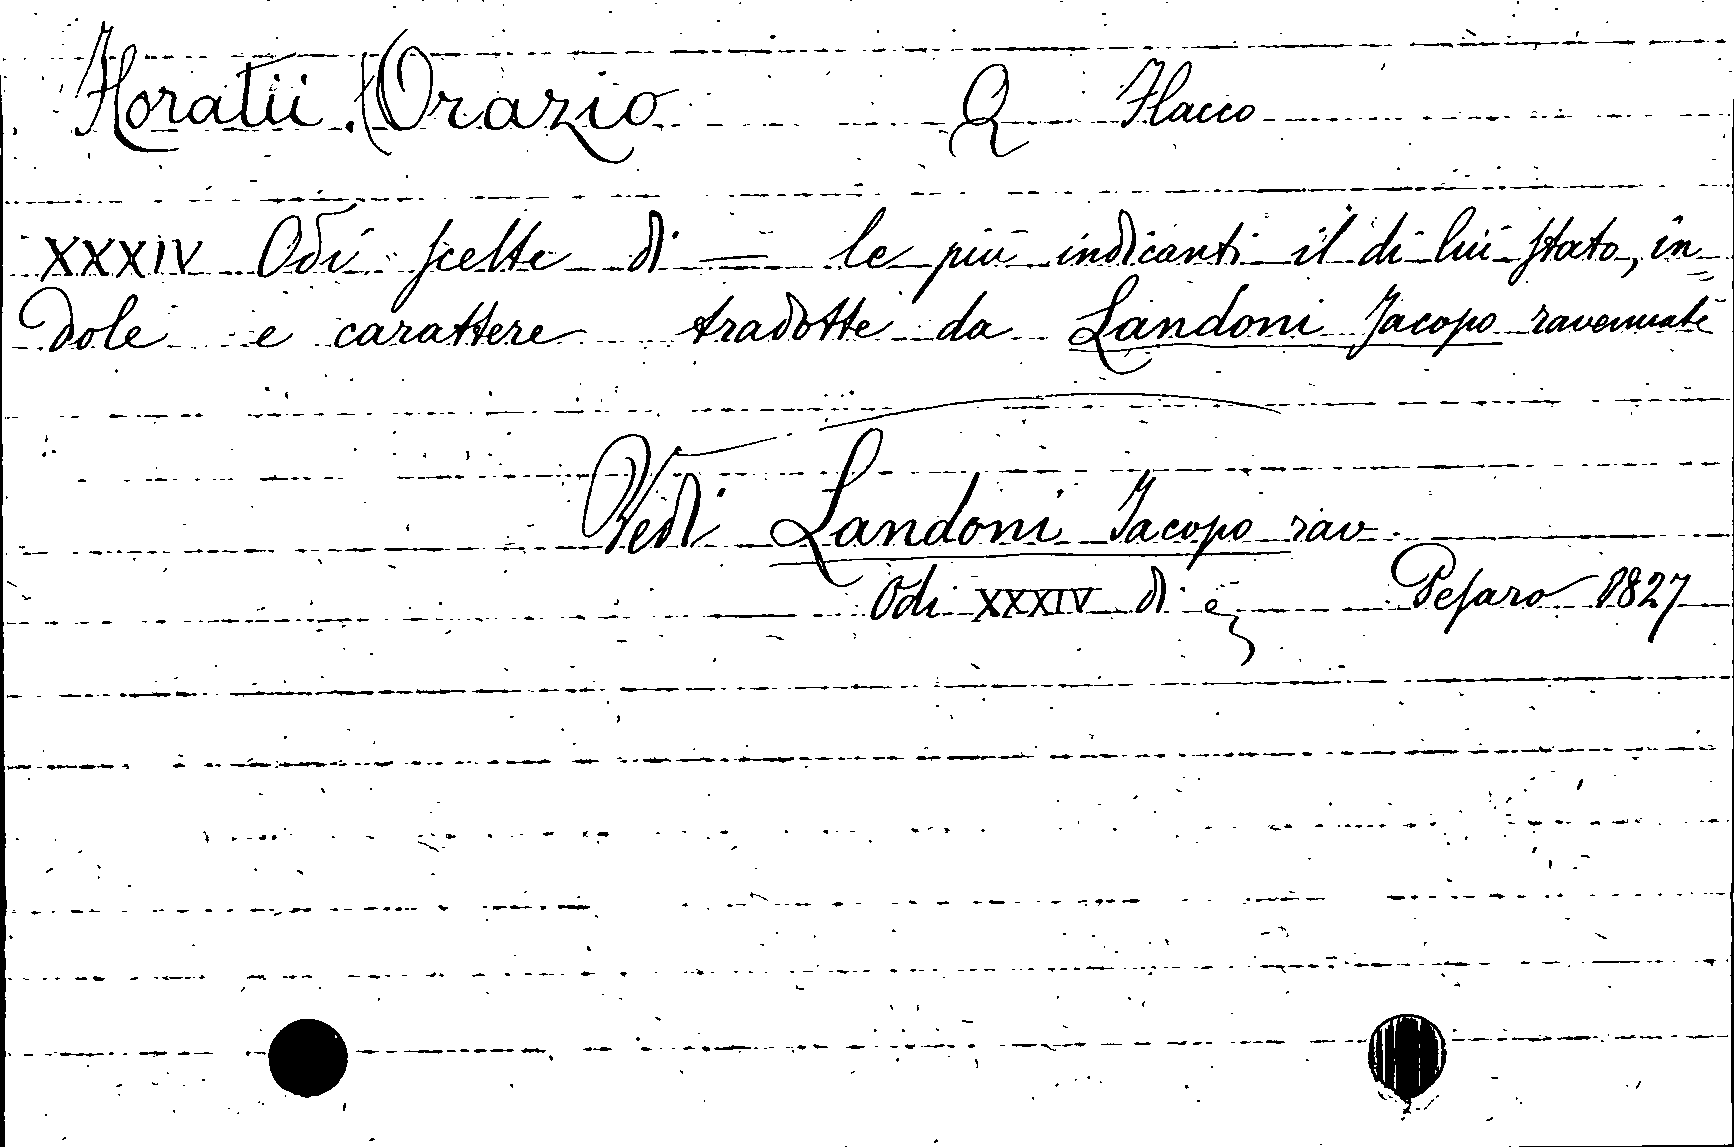 Horatii (Orazio Q Flacco
XXXIV Odi scelte di — le più indicanti il di lui stato, in=
dole e carattere tradotte da Landoni Jacopo ravennate
Vedi Landoni Jacopo rav.
Odi XXXIV di Pesaro 1827